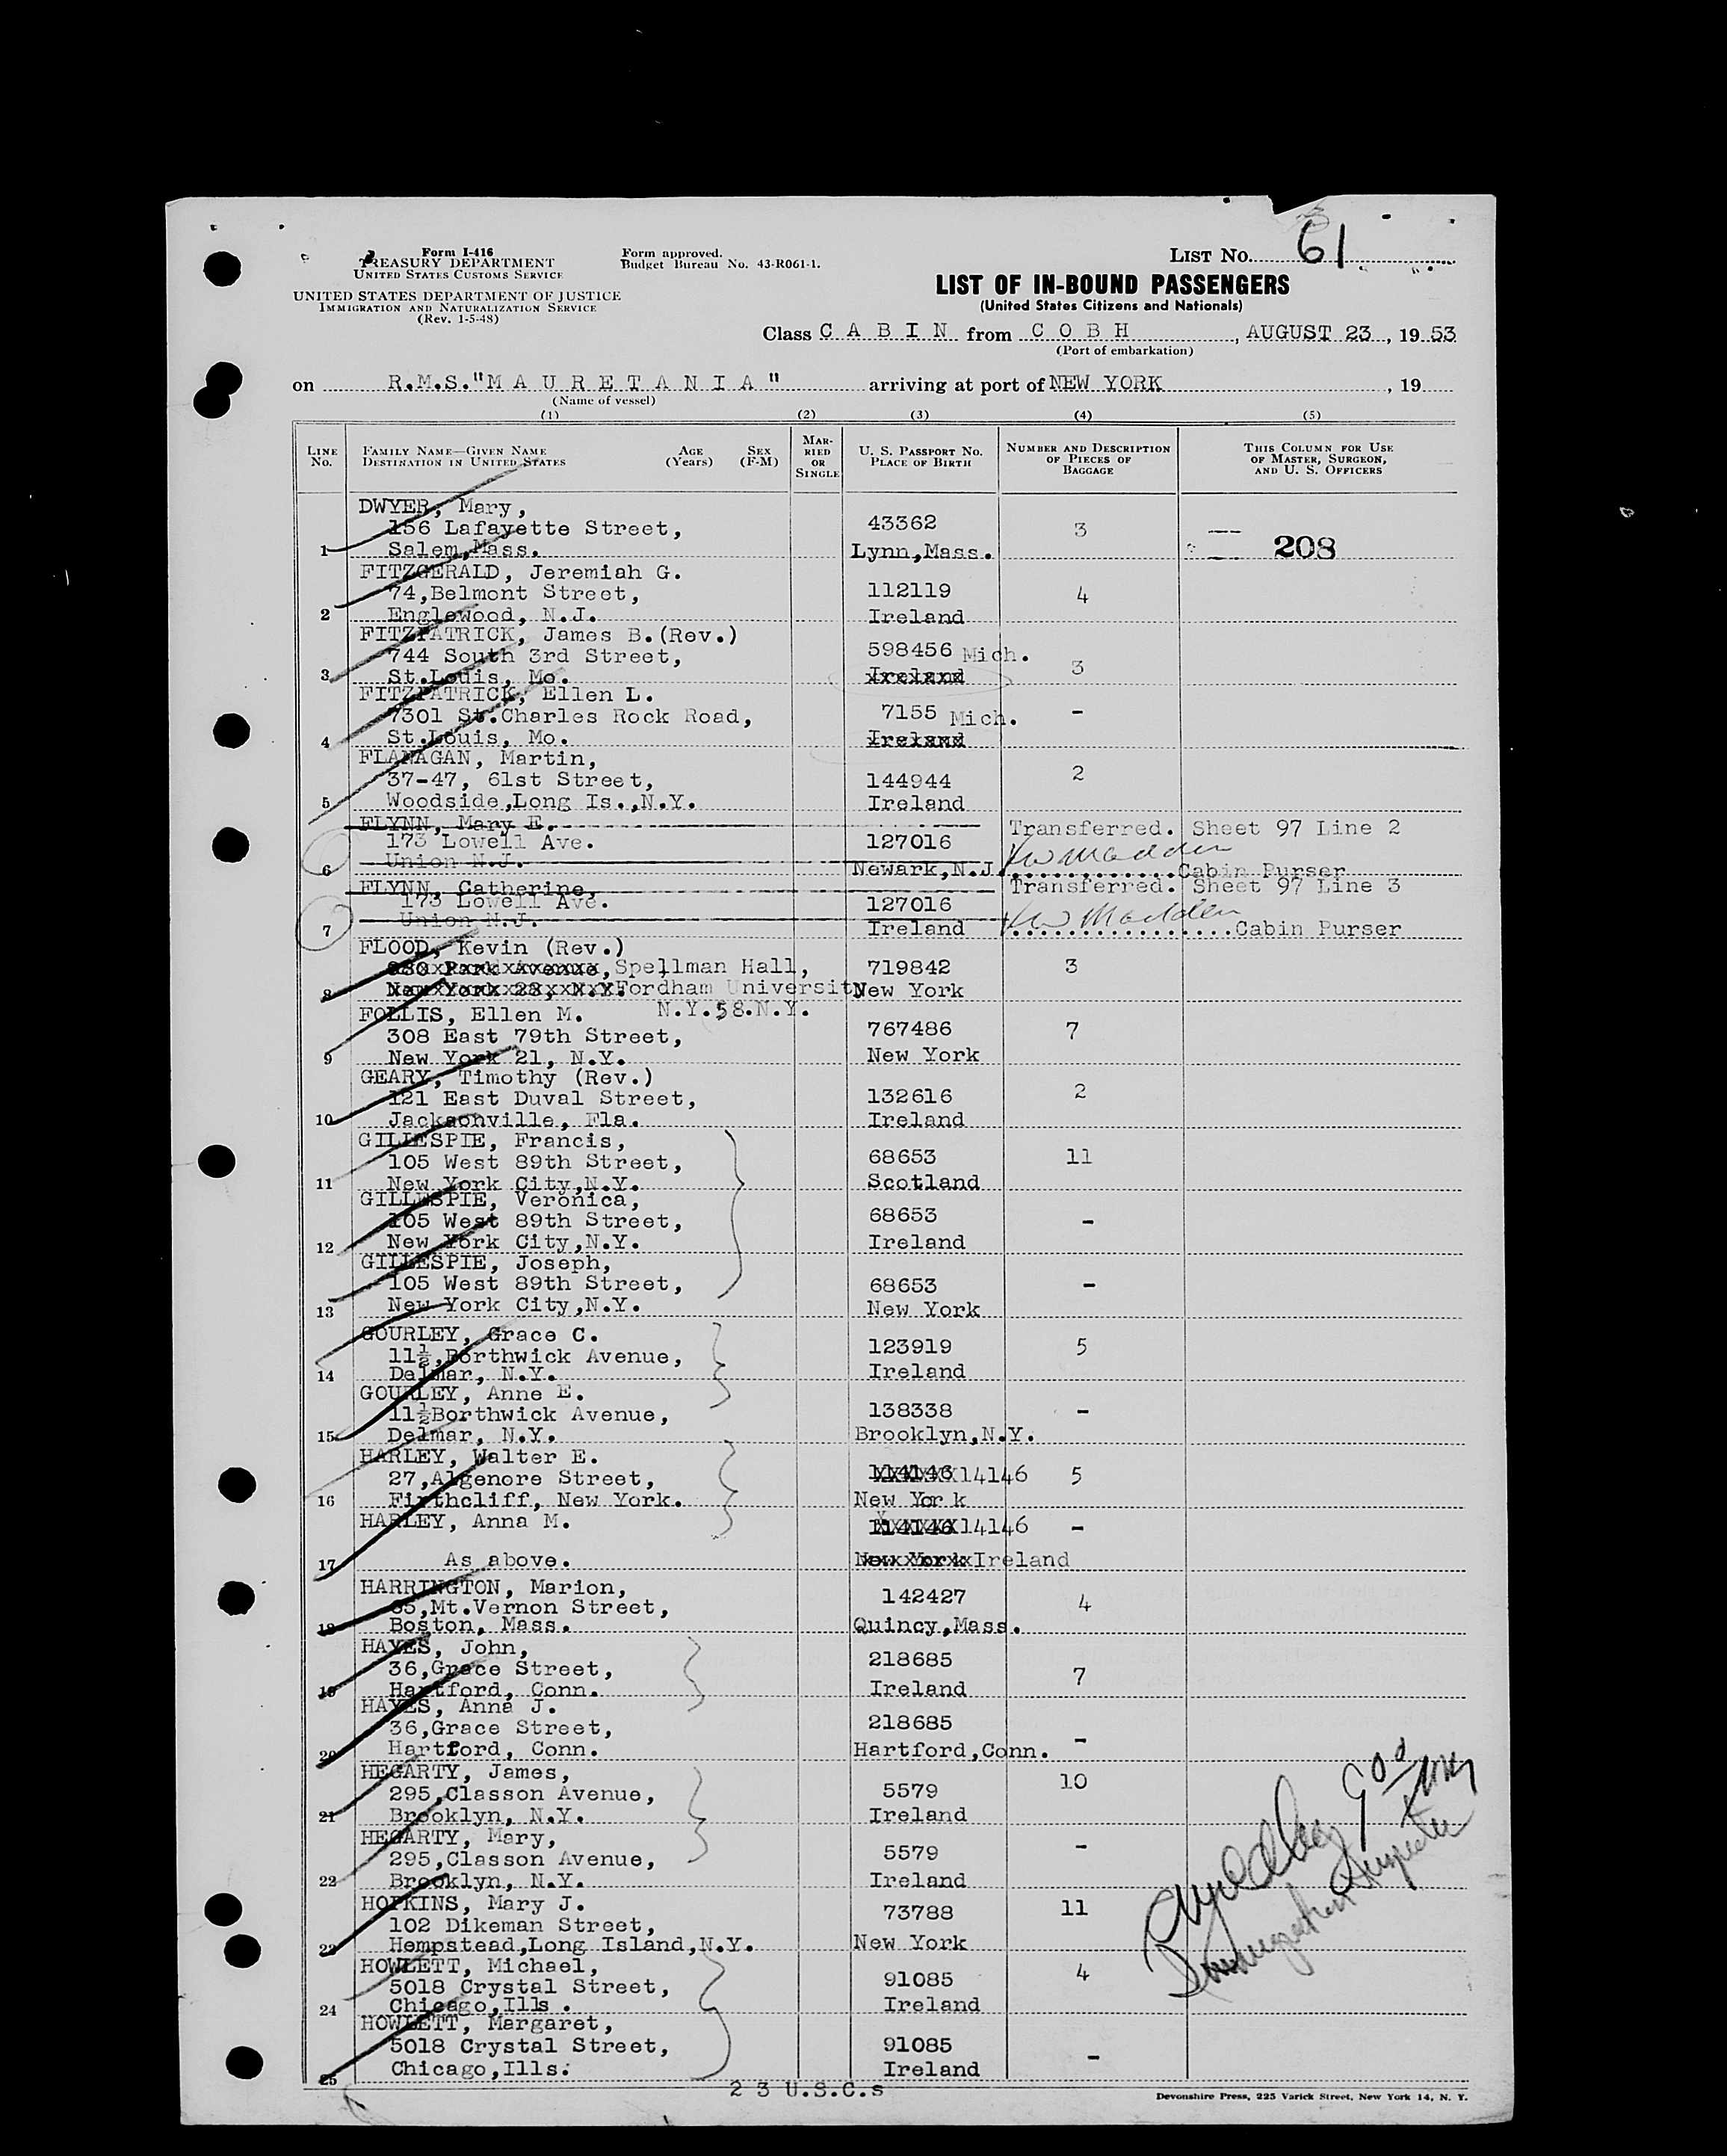 Form I-416
TREASURY DEPARTMENT
UNITED STATES CUSTOMS SERVICE
UNITED STATES DEPARTMENT OF JUSTICE
IMMIGRATION AND NATURALIZATION SERVICE
(Rev. 1-5-48)
Form approved.
Budget Bureau No. 43-R061-1.
LIST NO. 61
LIST OF IN-BOUND PASSENGERS
(United States Citizens and Nationals)
Class CABIN from COBH, AUGUST 23, 1953
(Port of embarkation)
on R.M.S."MAURETANIA" arriving at port of NEW YORK, 19
(Name of vessel)
(1) (2) (3) (4) (5)
LINE NO. FAMILY NAME—GIVEN NAME DESTINATION IN UNITED STATES AGE (Years) SEX (F-M) MARRIED OR SINGLE U. S. PASSPORT NO. PLACE OF BIRTH NUMBER AND DESCRIPTION OF PIECES OF BAGGAGE THIS COLUMN FOR USE OF MASTER, SURGEON, AND U. S. OFFICERS
DWYER, Mary,
156 Lafayette Street, 43362 3
1 Salem,Mass. Lynn,Mass. 208
FITZGERALD, Jeremiah G.
74,Belmont Street, 112119 4
2 Englewood, N.J. Ireland
FITZPATRICK, James B.(Rev.)
744 South 3rd Street, 598456 Mich.
3 St.Louis, Mo. Ireland 3
FITZPATRICK, Ellen L.
7301 St.Charles Rock Road, 7155 Mich. -
4 St.Louis, Mo. Ireland
FLANAGAN, Martin,
37-47, 61st Street, 144944 2
5 Woodside,Long Is.,N.Y. Ireland
FLYNN, Mary E. Transferred. Sheet 97 Line 2
173 Lowell Ave. 127016
6 Union N.J. Newark,N.J. Cabin Purser
FLYNN, Catherine, Transferred. Sheet 97 Line 3
173 Lowell Ave. 127016
7 Union N.J. Ireland Cabin Purser
FLOOD, Kevin (Rev.)
980 Park Avenue, Spellman Hall, 719842 3
8 New York 28, N.Y. Fordham University New York
N.Y.58.N.Y.
FOLLIS, Ellen M.
308 East 79th Street, 767486 7
9 New York 21, N.Y. New York
GEARY, Timothy (Rev.)
121 East Duval Street, 132616 2
10 Jacksonville, Fla. Ireland
GILLESPIE, Francis,
105 West 89th Street, 68653 11
11 New York City,N.Y. Scotland
GILLESPIE, Veronica,
105 West 89th Street, 68653 -
12 New York City,N.Y. Ireland
GILLESPIE, Joseph,
105 West 89th Street, 68653 -
13 New York City,N.Y. New York
GOURLEY, Grace C.
11½,Borthwick Avenue, 123919 5
14 Delmar, N.Y. Ireland
GOURLEY, Anne E.
11½Borthwick Avenue, 138338 -
15 Delmar, N.Y. Brooklyn,N.Y.
HARLEY, Walter E.
27,Algenore Street, 114146 14146 5
16 Firthcliff, New York. New York
HARLEY, Anna M. 114146 14146 -
17 As above. New York Ireland
HARRINGTON, Marion,
85,Mt.Vernon Street, 142427 4
18 Boston, Mass. Quincy,Mass.
HAYES, John,
36,Grace Street, 218685 7
19 Hartford, Conn. Ireland
HAYES, Anna J.
36,Grace Street, 218685
20 Hartford, Conn. Hartford,Conn. -
HEGARTY, James,
295,Classon Avenue, 5579 10
21 Brooklyn, N.Y. Ireland
HEGARTY, Mary,
295,Classon Avenue, 5579 -
22 Brooklyn, N.Y. Ireland
HOPKINS, Mary J.
102 Dikeman Street, 73788 11
23 Hempstead,Long Island,N.Y. New York
HOWLETT, Michael,
5018 Crystal Street, 91085 4
24 Chicago,Ills. Ireland
HOWLETT, Margaret,
5018 Crystal Street, 91085
25 Chicago,Ills. Ireland -
23 U.S.C.s
Immigrant Inspector
Devonshire Press, 225 Varick Street, New York 14, N. Y.